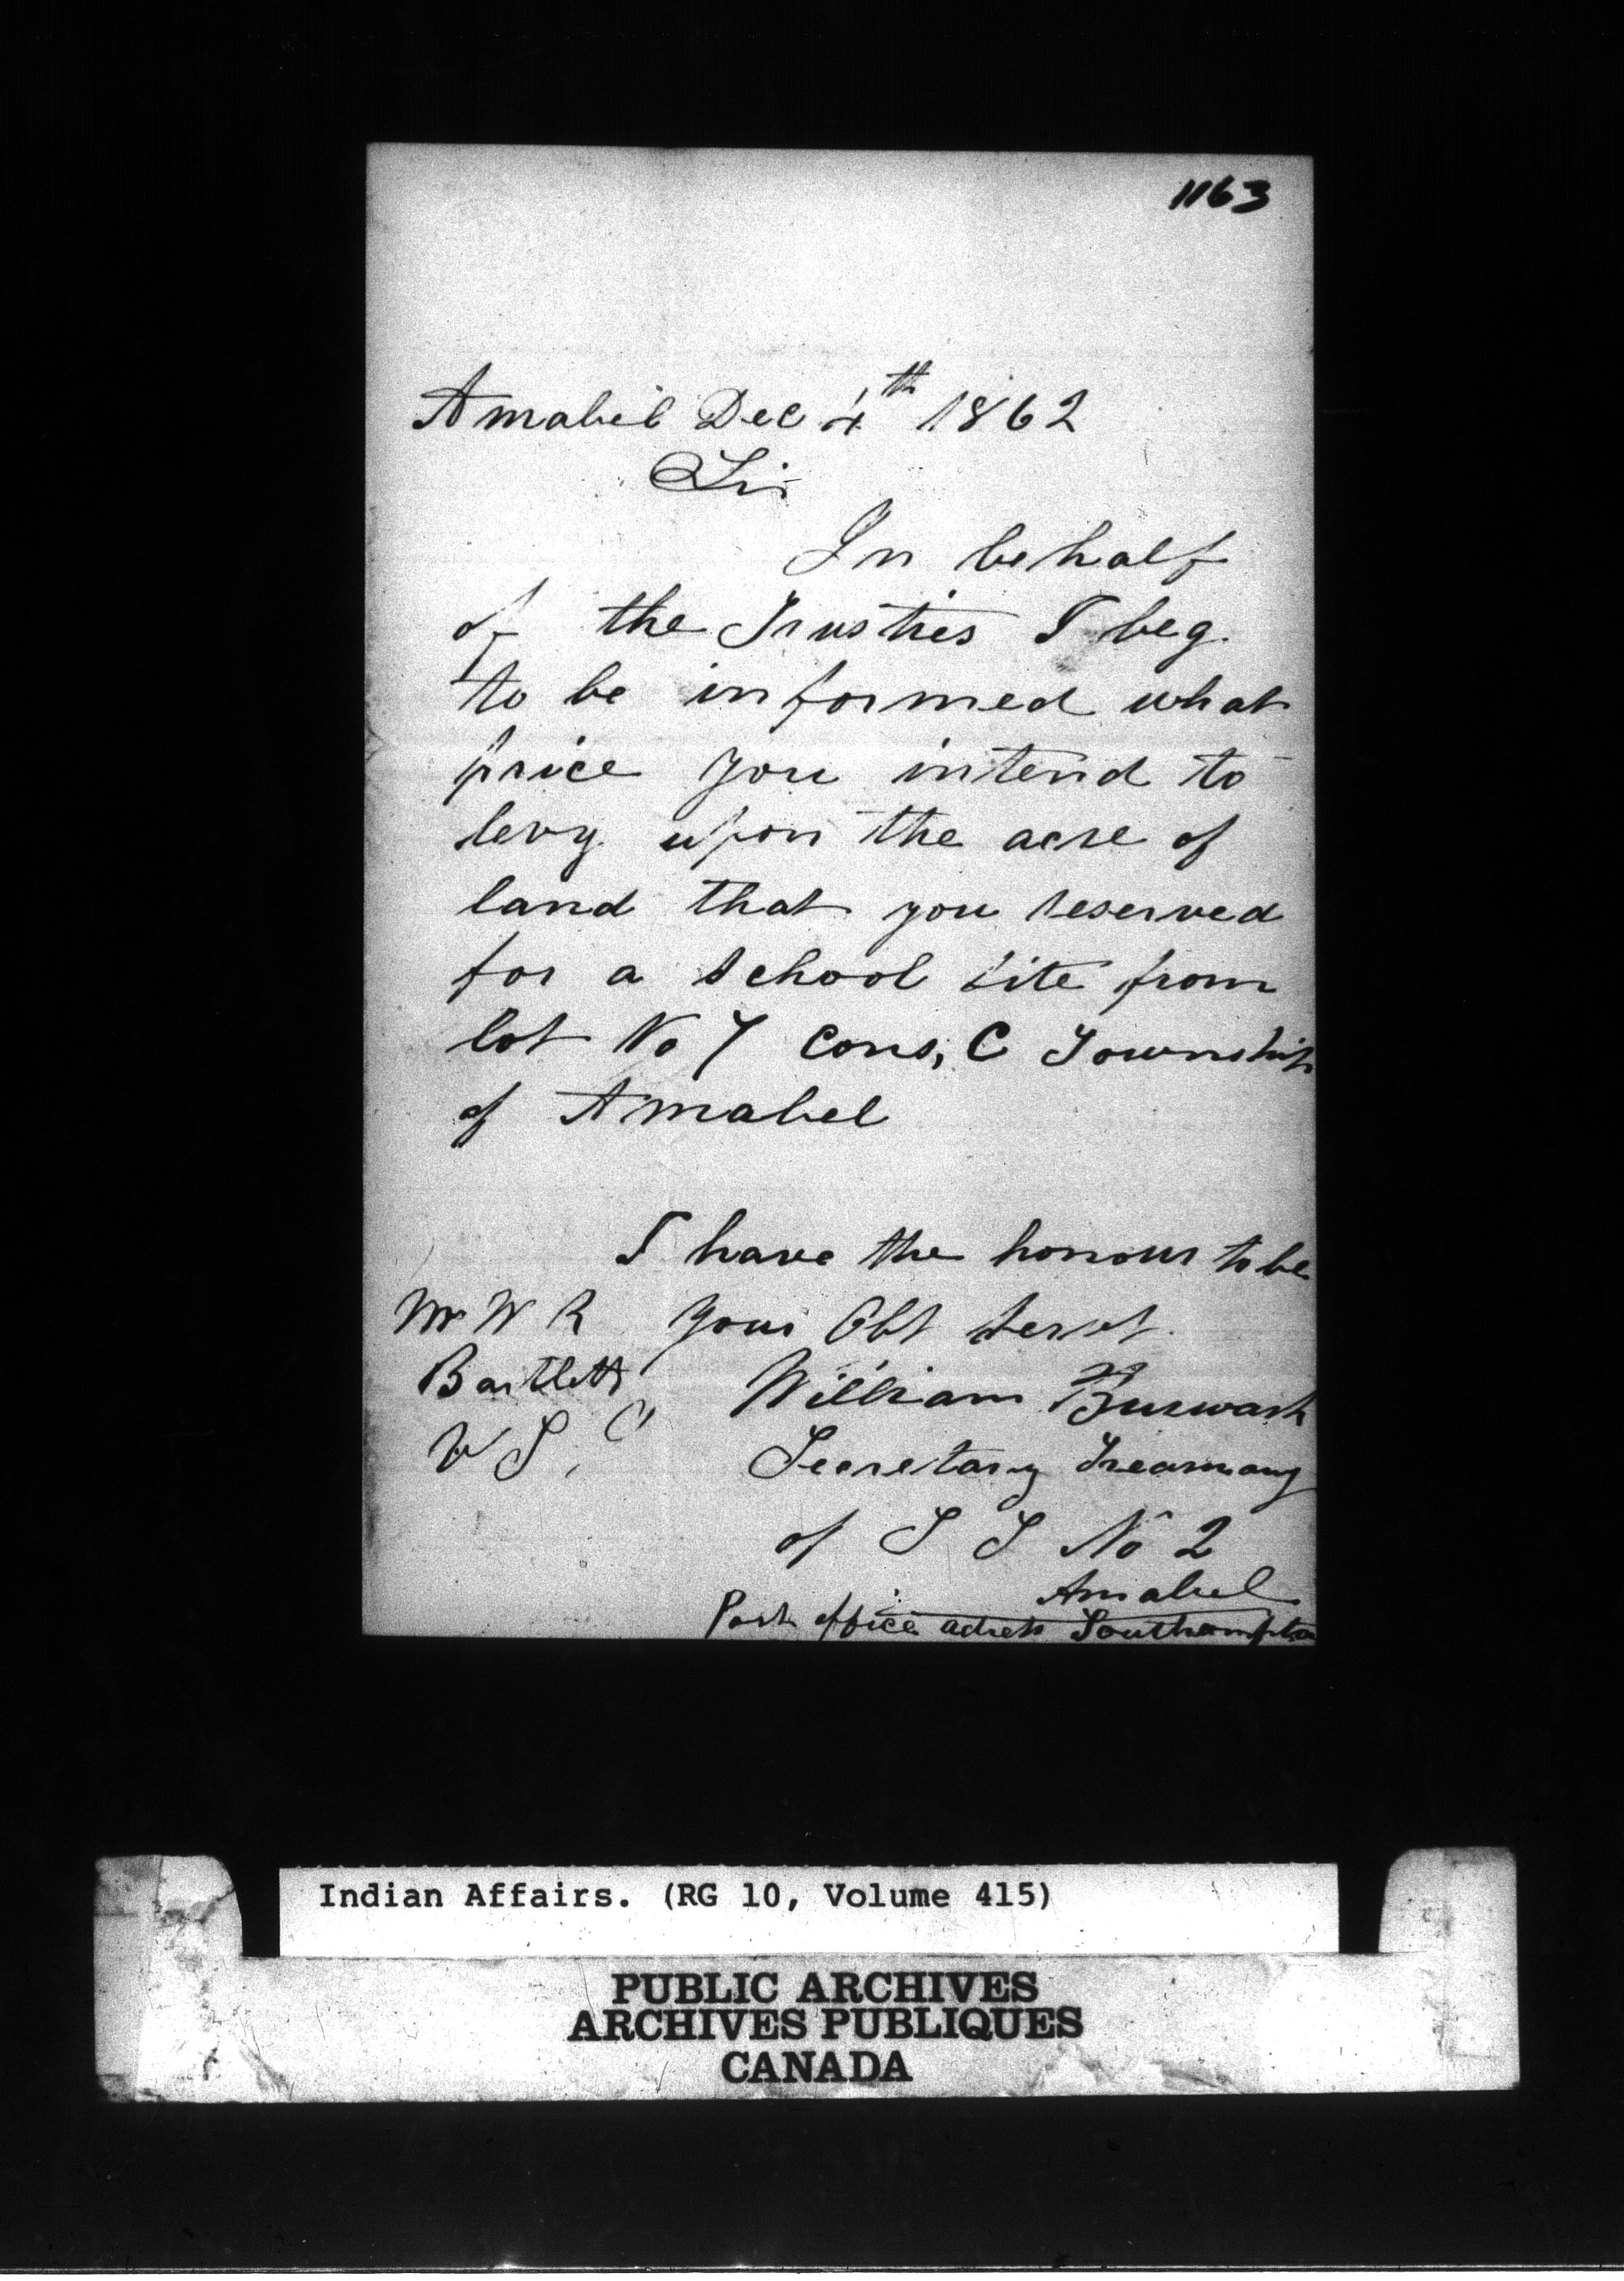 1163
Amabel Dec 4th 1862
Sir
In behalf
of the Trusties I beg
to be informed what
price you intend to
levy upon the acre of
land that you reserved
for a school site from
lot No 7 Cons, C Township
of Amabel
I have the honour to be
Mr W R your Obt servt
Bartlett William Burwash
V S, C Secretary
of S S No 2
Amabel
Post office adress Southampton
Indian Affairs. (RG 10, Volume 415)
PUBLIC ARCHIVES
ARCHIVES PUBLIQUES
CANADA